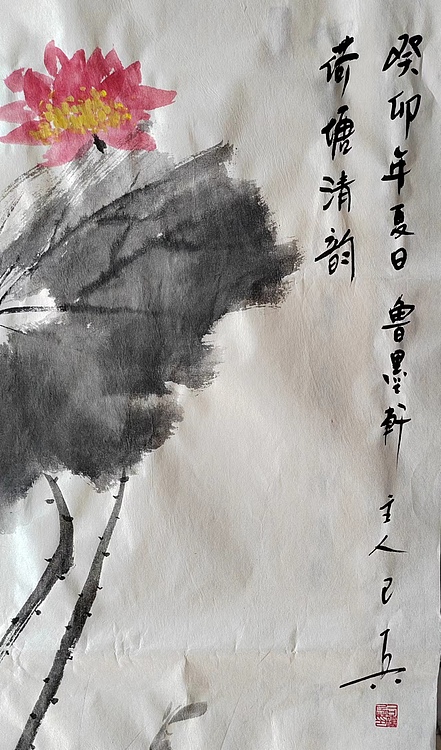 癸卯年夏日鲁墨轩主人已真
荷塘清韵